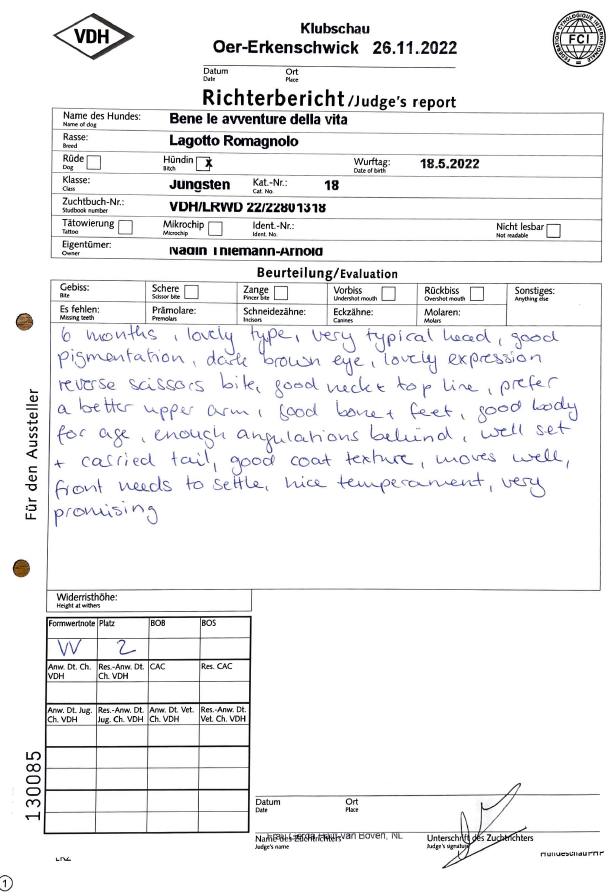 VDH
Klubschau
Oer-Erkenschwick 26.11.2022
FCI
FEDERATION CYNOLOGIQUE INTERNATIONALE
Datum Ort
Date Place
Richterbericht/Judge's report
Name des Hundes: Bene le avventure della vita
Name of dog
Rasse: Lagotto Romagnolo
Breed
Rüde Hündin x Wurftag: 18.5.2022
Dog Bitch Date of birth
Klasse: Jüngsten Kat.-Nr.: 18
Class Cat. No.
Zuchtbuch-Nr.: VDH/LRWD 22/22801318
Studbook number
Tätowierung Mikrochip Ident.-Nr.: Nicht lesbar
Tattoo Microchip Ident. No. Not readable
Eigentümer: Nadin Thiemann-Arnold
Owner
Beurteilung/Evaluation
Gebiss: Schere Zange Vorbiss Rückbiss Sonstiges:
Bite Scissor bite Pincer bite Undershot mouth Overshot mouth Anything else
Es fehlen: Prämolare: Schneidezähne: Eckzähne: Molaren:
Missing teeth Premolars Incisors Canines Molars
6 months, lovely type, very typical head, good
pigmentation, dark brown eye, lovely expression
reverse scissors bite, good neck + top line, prefer
a better upper arm, good bone + feet, good body
for age, enough angulations behind, well set
+ carried tail, good coat texture, moves well,
front needs to settle, nice temperament, very
promising
Für den Aussteller
Widerristhöhe:
Height at withers
Formwertnote Platz BOB BOS
VV 2
Anw. Dt. Ch. VDH Res.-Anw. Dt. Ch. VDH CAC Res. CAC
Anw. Dt. Jug. Ch. VDH Res.-Anw. Dt. Jug. Ch. VDH Anw. Dt. Vet. Ch. VDH Res.-Anw. Dt. Vet. Ch. VDH
130085
Datum Ort
Date Place
Name des Zuchtrichters Unterschrift des Zuchtrichters
Judge's name Judge's signature
van Boven, NL
1